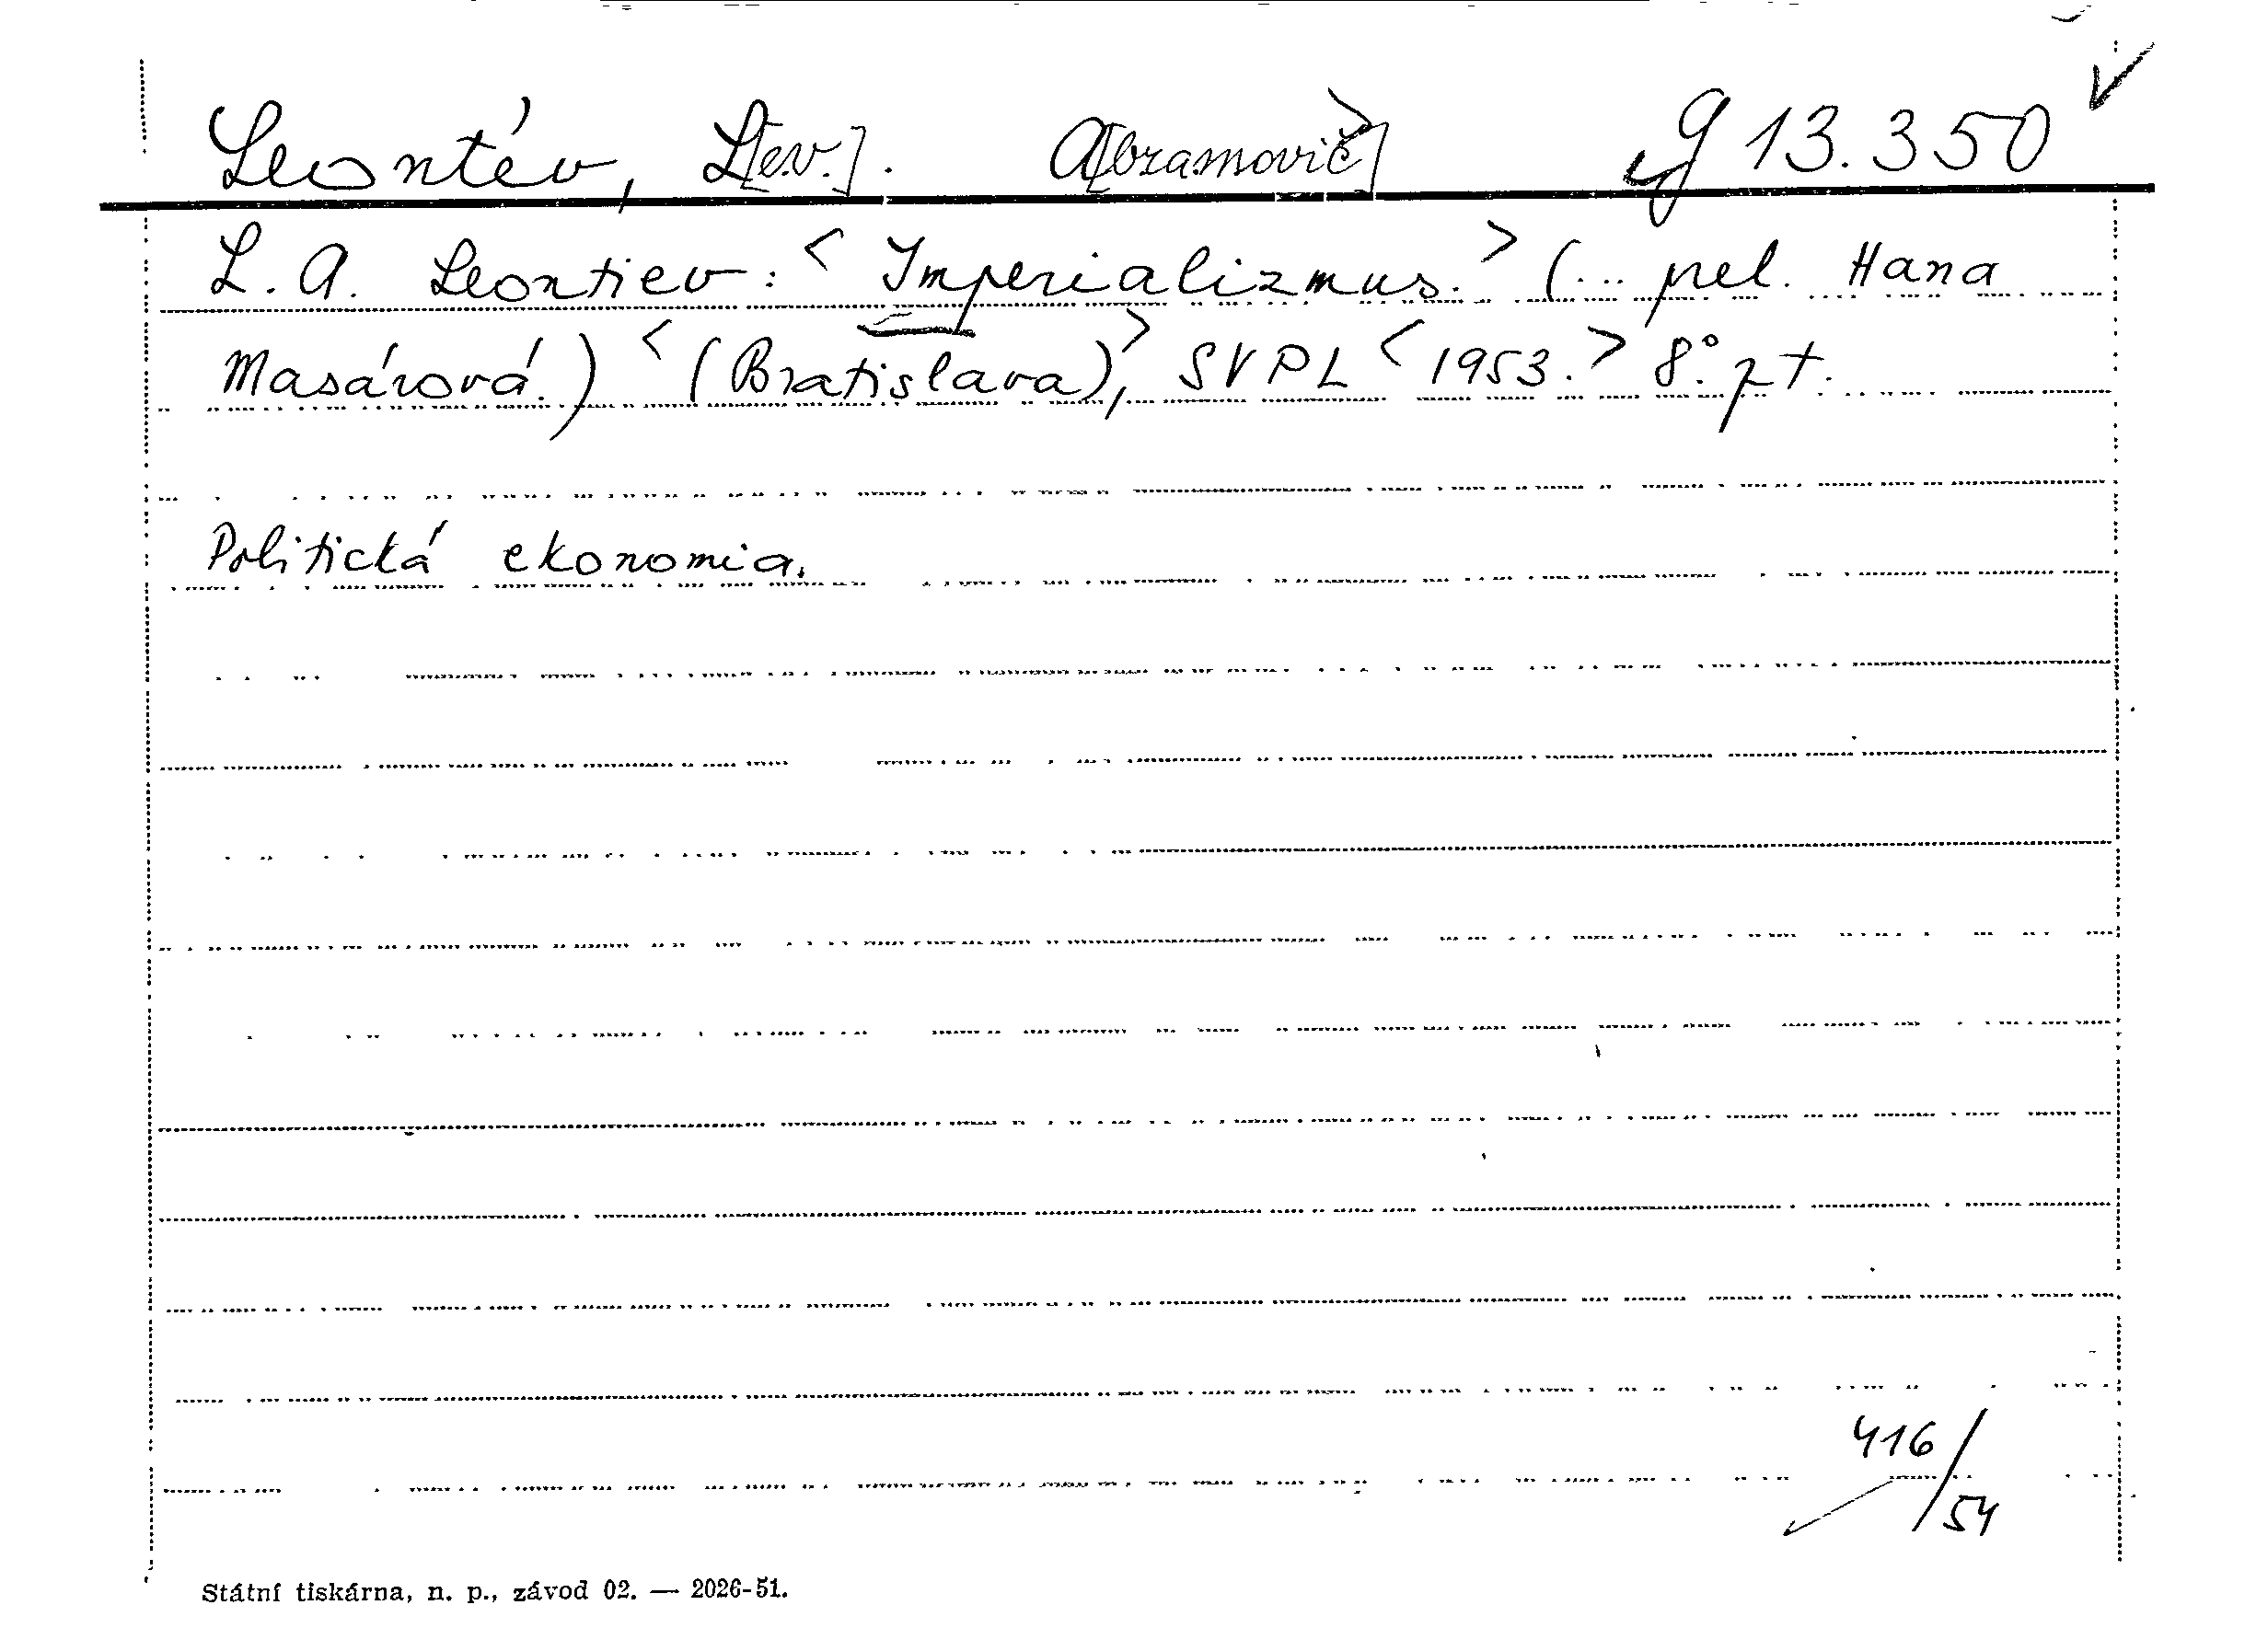 Leontév, L[ev]. A[bramovič] g 13.350
L. A. Leontiev: <Imperializmus.> (... prel. Hana
Masárová.) <(Bratislava)>, SVPL <1953.> 8°.
Politická ekonomia.
416/54
Státní tiskárna, n. p., závod 02. — 2026-51.